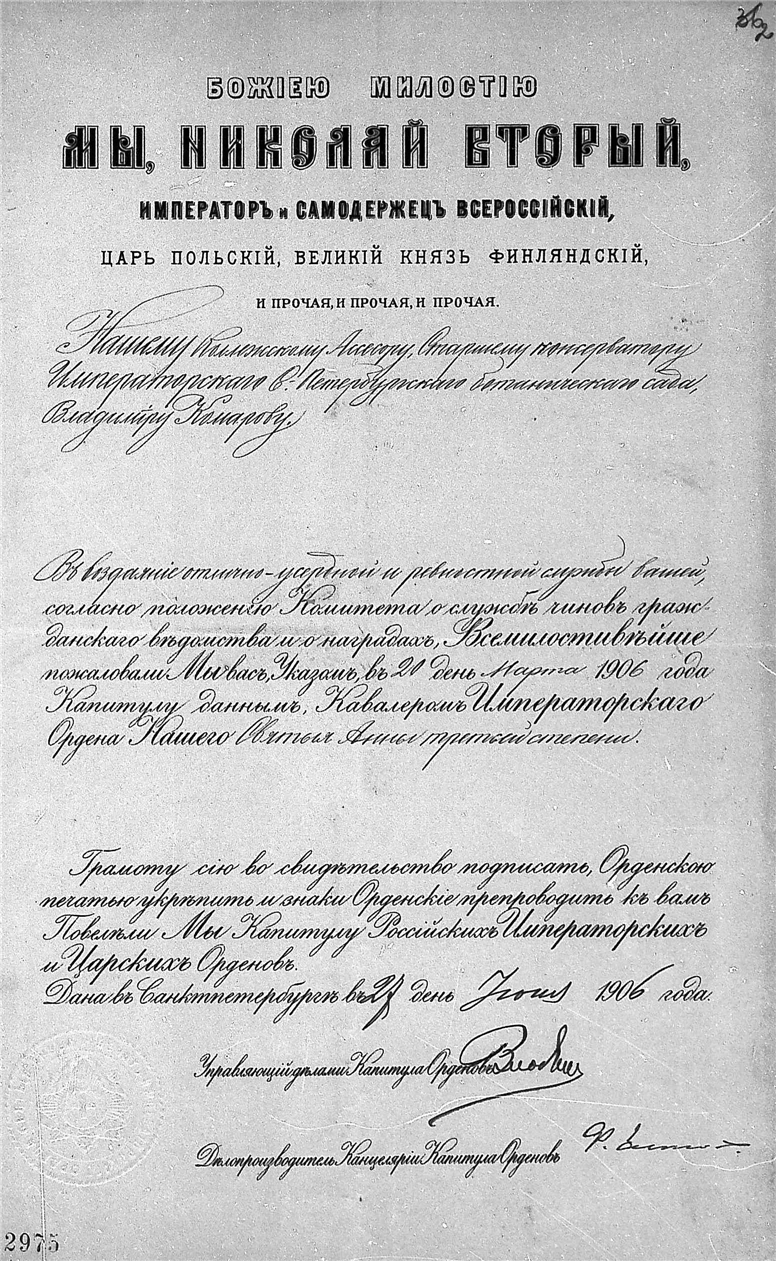 БОЖІЕЮ МИЛОСТІЮ
МЫ, НИКОЛАЙ ВТОРЫЙ,
ИМПЕРАТОРЪ и САМОДЕРЖЕЦЪ ВСЕРОССІЙСКІЙ,
ЦАРЬ ПОЛЬСКІЙ, ВЕЛИКІЙ КНЯЗЬ ФИНЛЯНДСКІЙ,
И ПРОЧАЯ, И ПРОЧАЯ, И ПРОЧАЯ.
Нашему Коллежскому Асесору, Старшему консерватору
Императорскаго С.-Петербургскаго ботаническаго сада,
Владиміру Комарову.
Въ воздаяніе отлично-усердной и ревностной службы вашей,
согласно положенію Комитета о службѣ чиновъ граж-
данскаго вѣдомства и о наградахъ, Всемилостивѣйше
пожаловали Мы васъ, Указомъ, въ 20 день Марта 1906 года
Капитулу даннымъ, Кавалеромъ Императорскаго
Ордена Нашего Святыя Анны третьей степени.
Грамоту сію во свидѣтельство подписать, Орденскою
печатью укрѣпить и знаки Орденскіе препроводить къ вамъ
Повелѣли Мы Капитулу Россійскихъ Императорскихъ
и Царскихъ Орденовъ.
Дана въ Санктпетербургѣ въ 27 день 1906 года.
Управляющій дѣлами Капитула Орденовъ
Дѣлопроизводитель Канцеляріи Капитула Орденовъ
2975